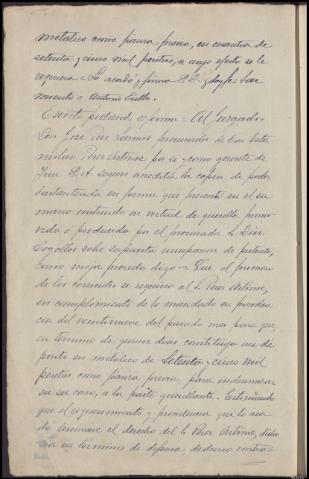 metalico como fianza previa, en cuantia de
setenta y cinco mil pesetas, a cuyo efecto se le
requiera = Lo acordó y firma S.S. doy fe
Antonio
Escrito pidiendo reforma = Al Juzgado
Don José Ramos procurador de Don Esta
nislao Perez Artime por si y como gerente de
S. A. segun acredita la copia de poder
en forma que presento en el su
mario instruido en virtud de querella promo
vida o producida por el procurador Sr. Diaz
Cogollos sobre supuesta usurpacion de patente,
como mejor proceda digo = Que el primero
de los corrientes se requirió al Sr. Perez Artime,
en cumplimiento de lo mandado en providen
cia del veintinueve del pasado mes para que
en termino de quince dias constituya un de
posito en metalico de setenta y cinco mil
pesetas como fianza previa para indemnizar
en su caso, a la parte querellante. Estimando
que el requerimiento y providencia que lo acor
do el derecho del Sr. Perez Artime, dicho
sea en terminos de defensa deduzco contra